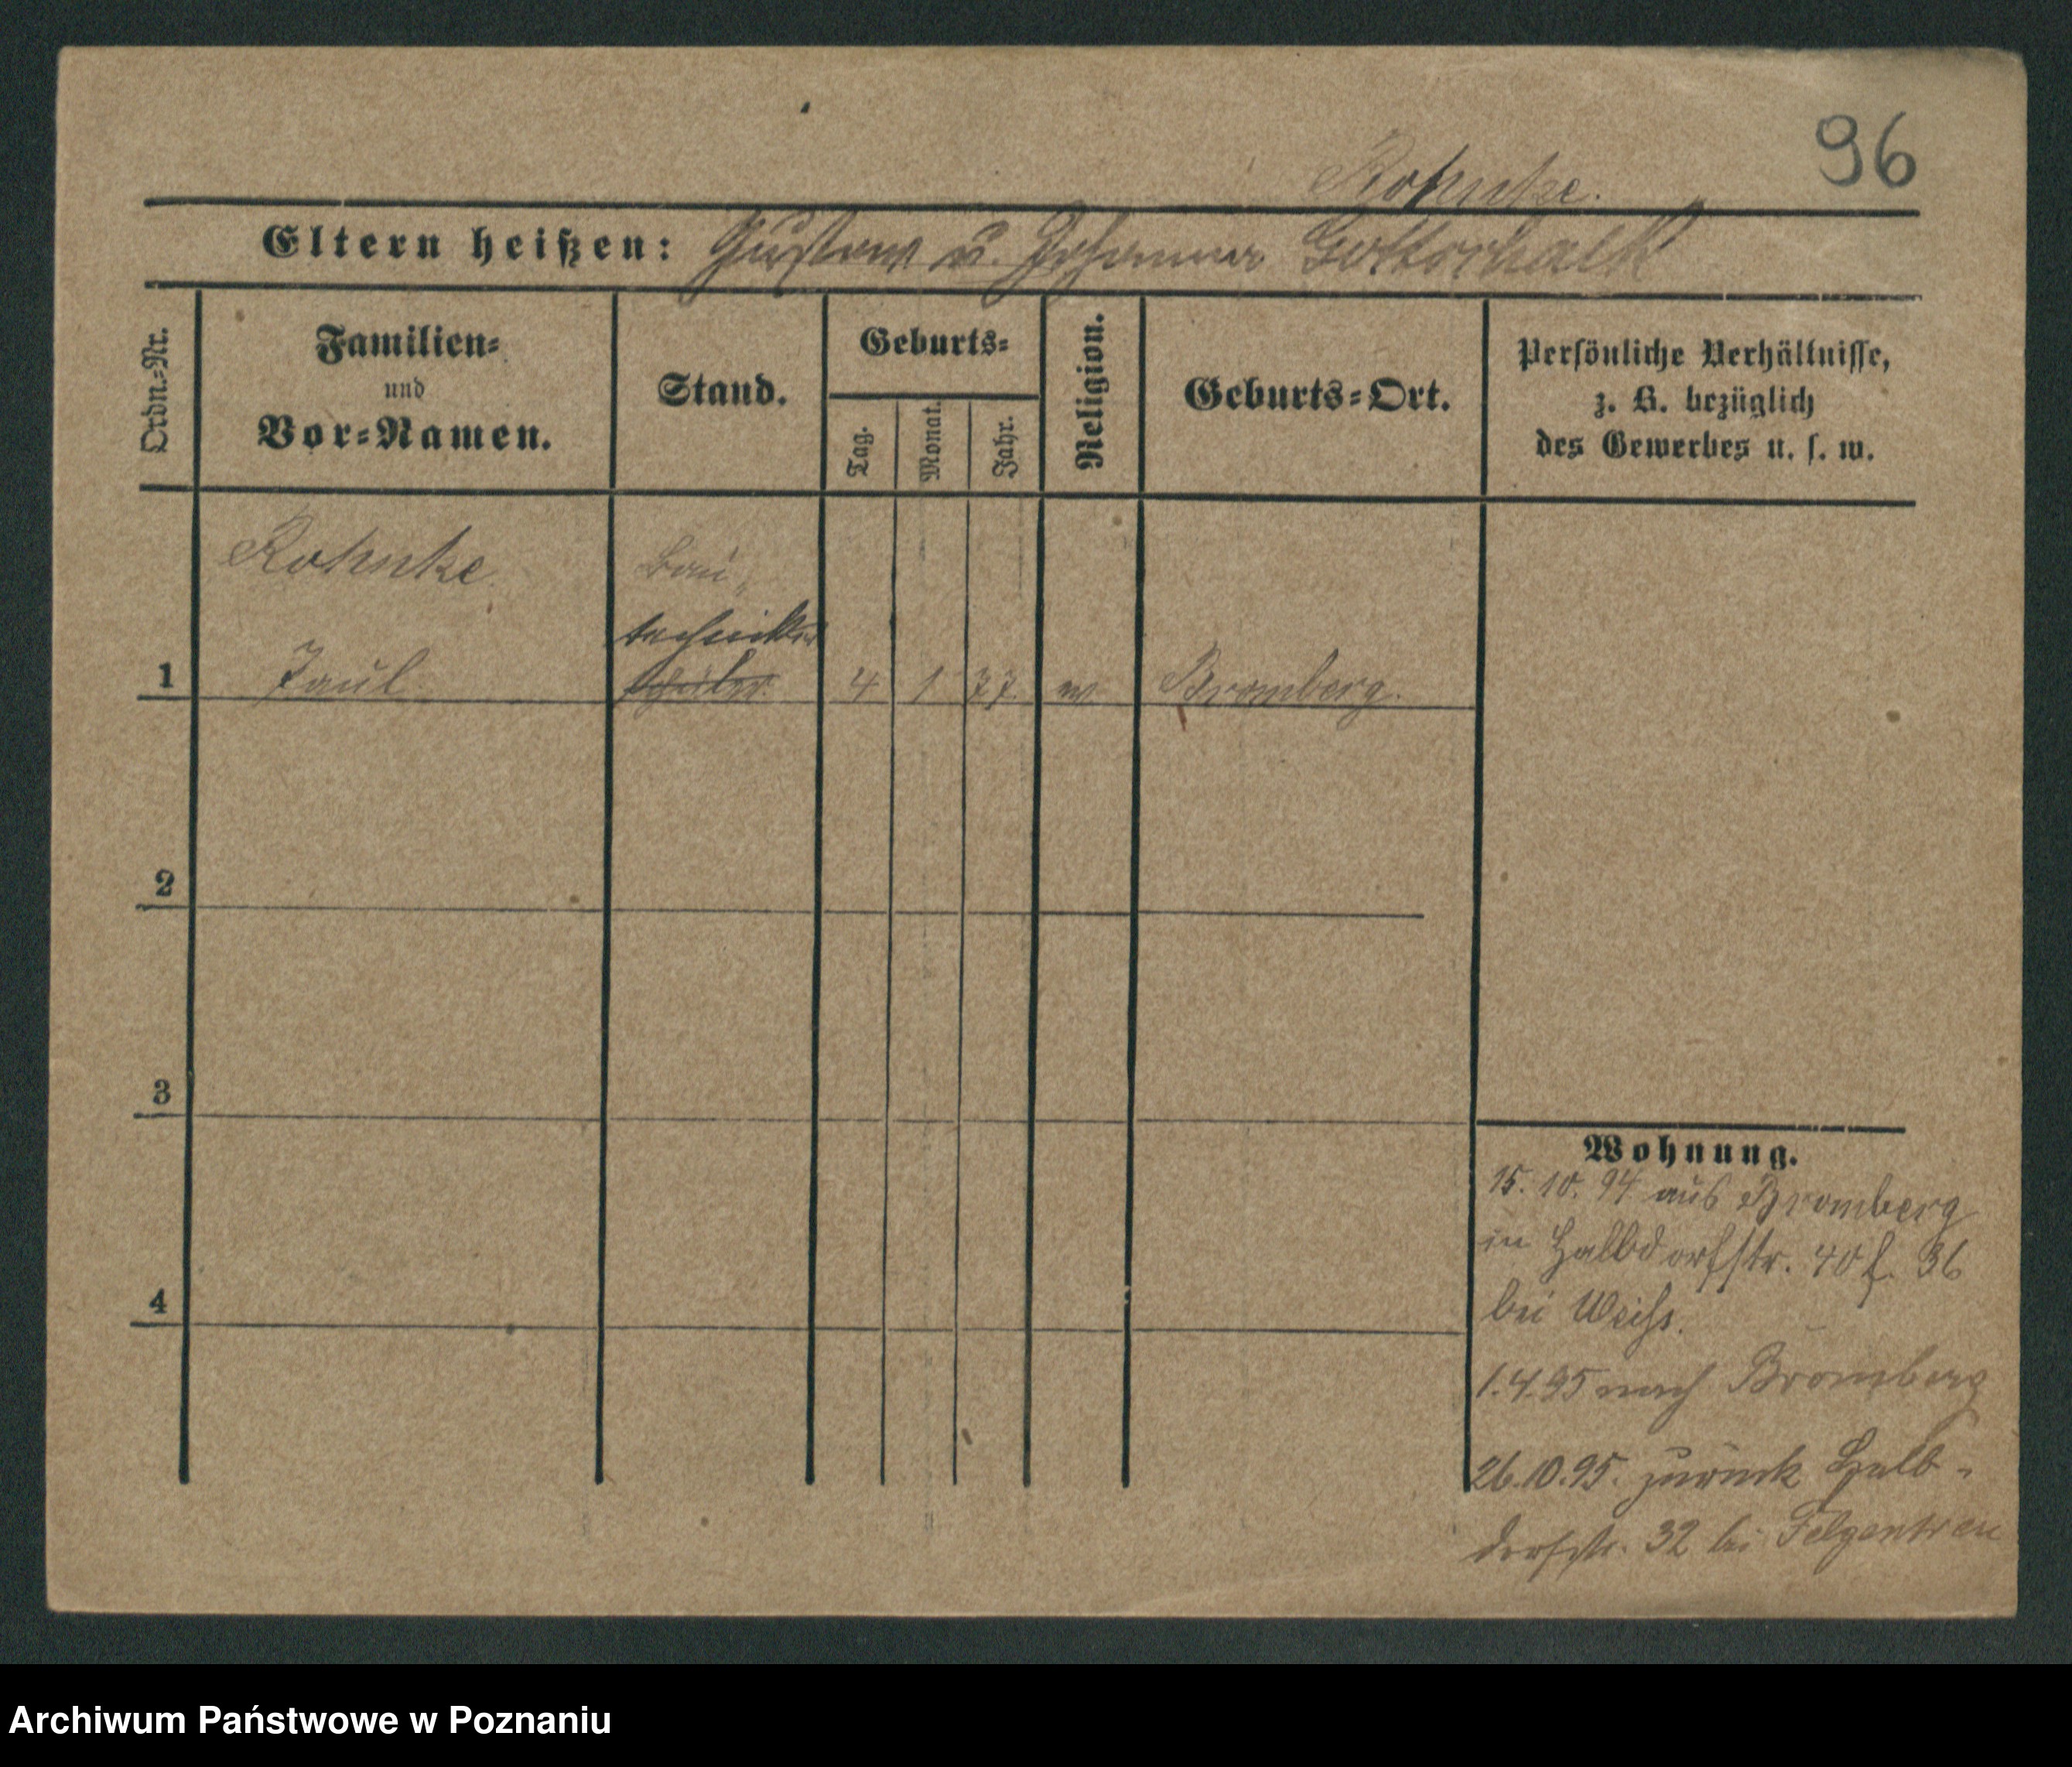 96
Rohnke.
Eltern heißen: Gustav u. Johanna Gottschalk
Ordn.=Nr.
Familien=
und
Vor=Namen.
Stand.
Geburts=
Tag.
Monat.
Jahr.
Religion.
Geburts=Ort.
Persönliche Verhältnisse,
z. B. bezüglich
des Gewerbes u. s. w.
Rohnke
Bau-
techniker
1 Paul Schüler 4 1 77 Bromberg.
2
3
4
Wohnung.
15. 10. 94 aus Bromberg
in Halbdorfstr. 40 f. 36
bei Weiß.
1.4.95 nach Bromberg
26.10.95. zurück Halb-
dorfstr. 32 bei Felgentreu
Archiwum Państwowe w Poznaniu